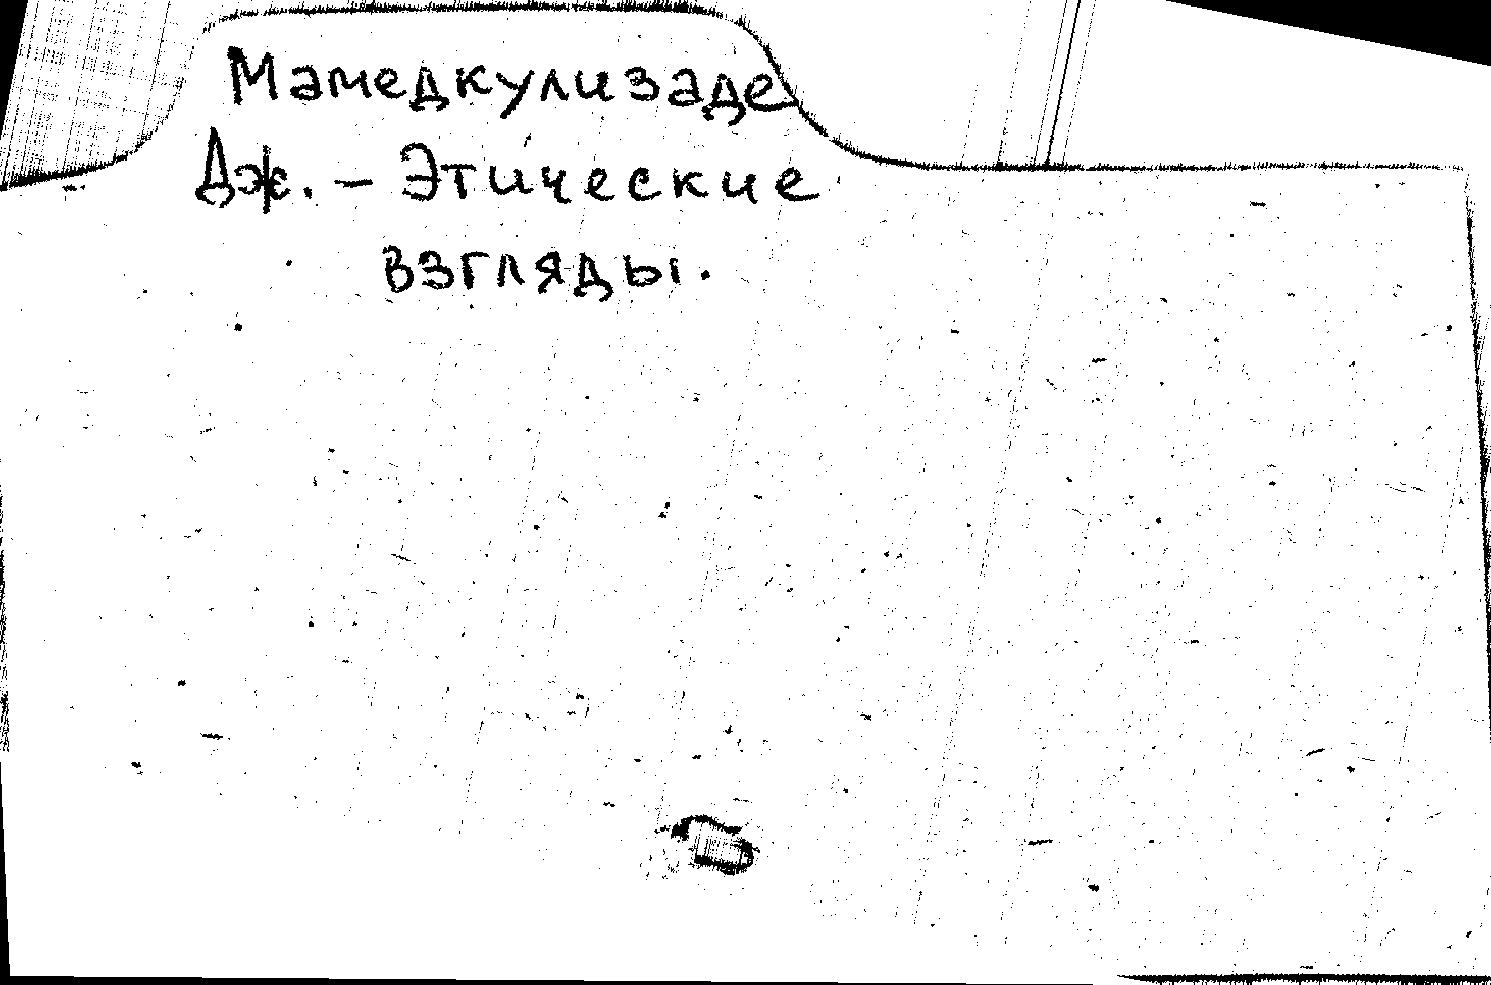 Мамедкулизаде
Дж. – Этические
взгляды.